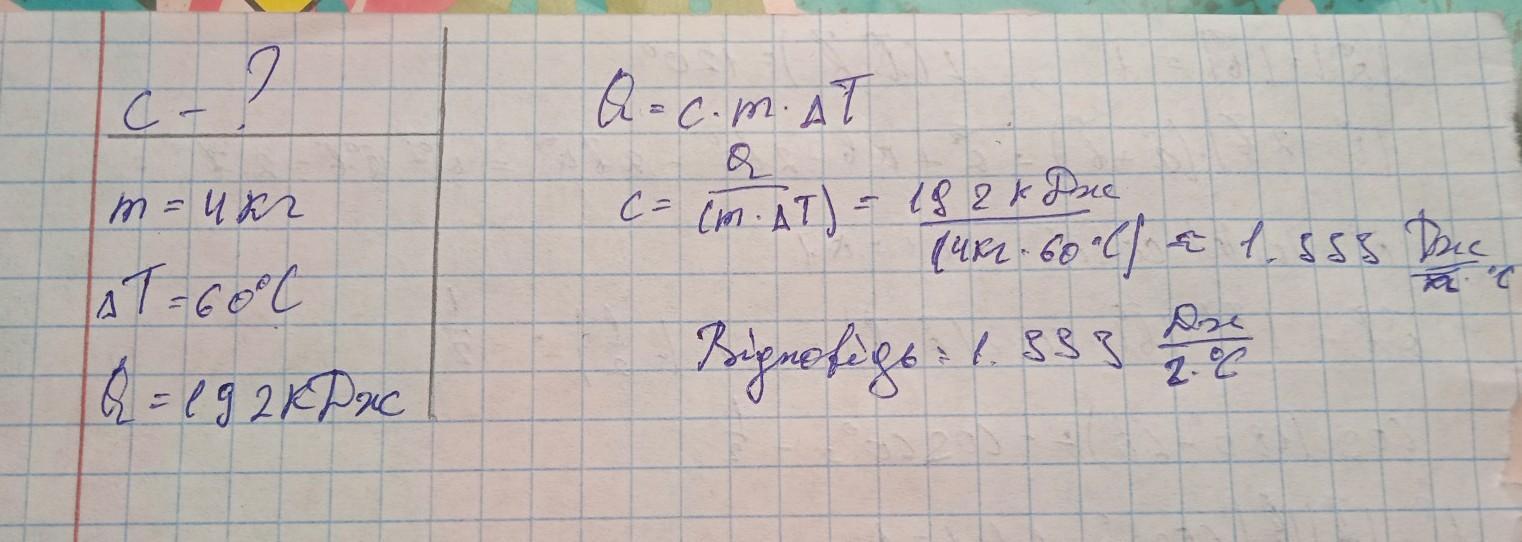 c - ?
m = 4 кг
ΔT = 60°C
Q = 192 кДж
Q = c · m · ΔT
c = Q / (m · ΔT) = 192 кДж / (4кг · 60°C) ≈ 1.333 Дж / г · °C
Відповідь: 1.333 Дж / г · °C